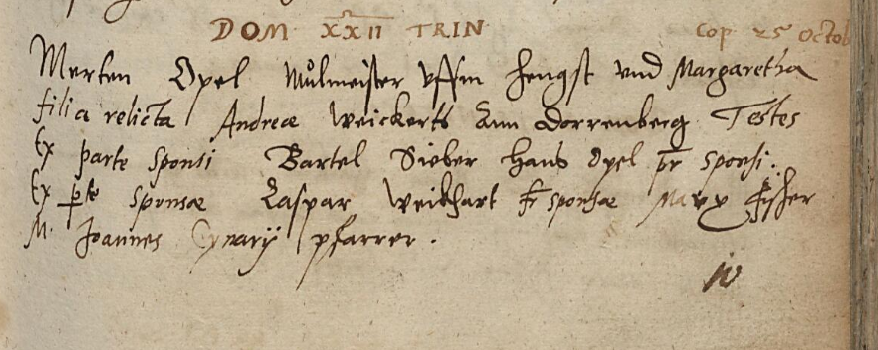 DOM XXII TRIN Cop 25 Octob
Merten Opel Mulmeister uffm hengst und Margaretha
filia relicta Andreæ Weickerts Zum Dorrenberg Testes
Ex parte sponsi Bartel Sieber hans Opel pr sponsi.
Ex pte sponsæ Caspar Weikhart fr sponsæ Marx fischer
M. Joannes pfarrer.